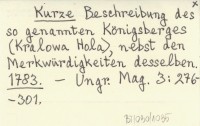 Kurze Beschreibung des
so genannten Königsberges
(Kralowa Hola), nebst den
Merkwürdigkeiten desselben.
1783. — Ungr. Mag. 3: 276-
-301.